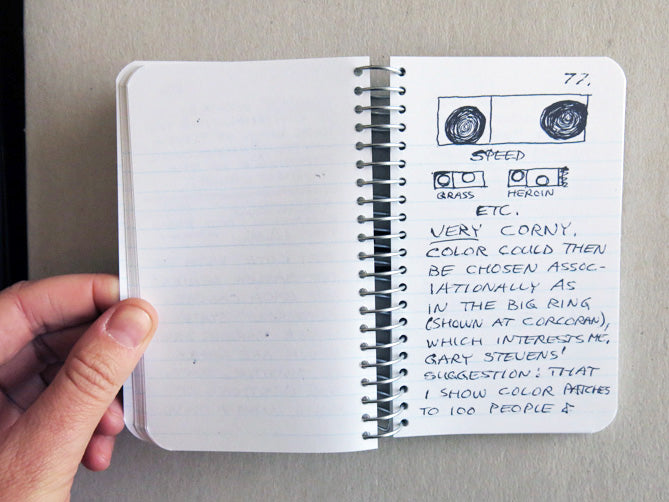 77.
SPEED
GRASS HEROIN
ETC.
VERY CORNY.
COLOR COULD THEN
BE CHOSEN ASSOC-
IATIONALLY AS
IN THE BIG RING
(SHOWN AT CORCORAN),
WHICH INTERESTS ME.
GARY STEVENS'
SUGGESTION: THAT
I SHOW COLOR PATCHES
TO 100 PEOPLE &